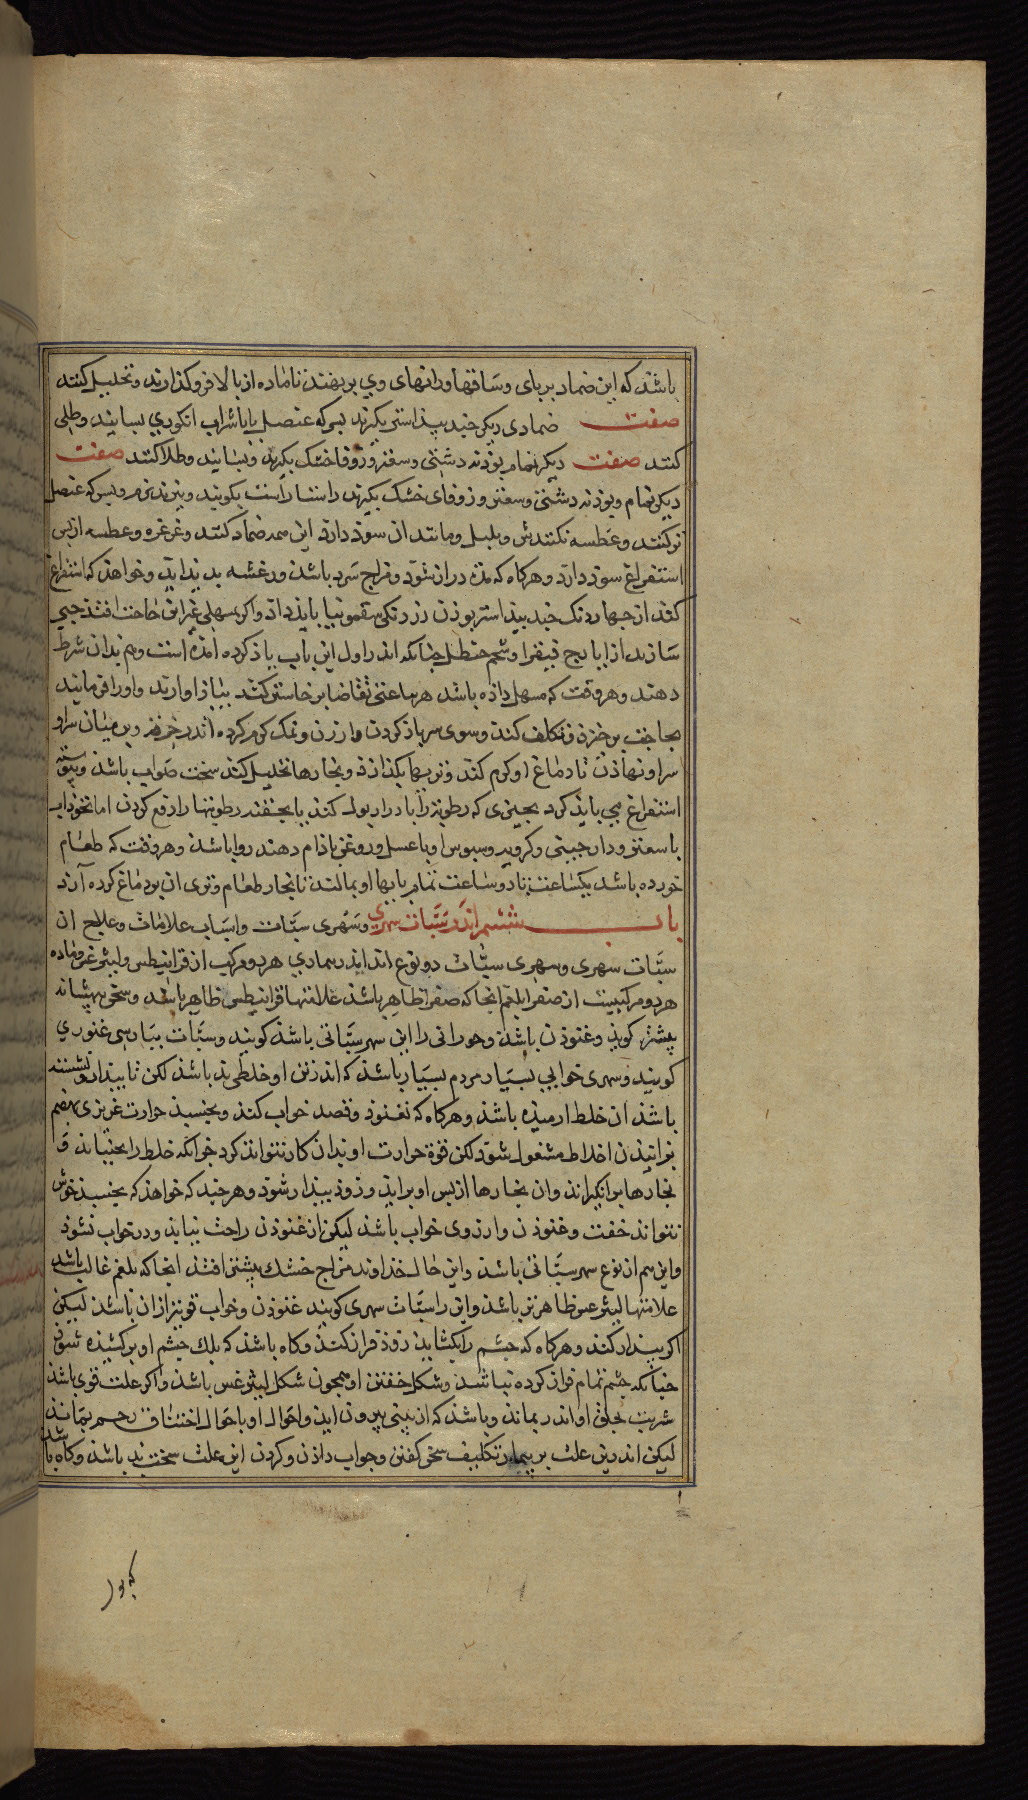 باشذ که این ضماد بر پای و ساقها و رانهای وی بر نهند تا ماده از بالا فرو کذارند و تحلیل کنند
صفت ضمادی دیکر جندبیذاستر بکیرند بسرکه عنصل یا با شراب انکوری بسایند و طلی
کنند صفت دیکر نمام بوذنه دشتی و سعتر و زوفا خشک بکیرند و بسایند و طلا کنند صفت
دیکر نمام و بوذنه دشتی و سعتر و زوفای خشک بکیرند راستاراست بکوبند و ببیزند و بسرکه عنصل
تر کنند و عطسه و بلبل و مانند ان سوذ دارد این همه ضماد کنند و غرغره و عطسه از بس
استفراغ سوذ دارد و هرکاه که مدة دراز شوذ و مزاج سرد باشذ و رعشه بدید اید و خواهذ که استفراغ
کند از جهار دنک جندبیذاستر بوزن سقمونیا بایذ داد و اکر بمسهلی غیر این حاجت افتذ حبی
سازند از ایارج فیقرا و شحم حنظل جنانکه اندر اول این باب یاذ کرده امذه است و هم بدان شرط
دهند و هر وقت که مسهل داذه باشذ هر ساعتی تقاضا بر خاستن کنند و او را فرمایند
بحاجت بر خیزذ و تکلف کند و موی سر باز کردن و ارزن و نمک کرم کرده اندر و بر میان سر او
سر او نهاذن تا دماغ او کرم کند و بخارها تحلیل کند سخت صواب باشذ و بیوسته
استفراغ می بایذ کرد بجیزی که رطوبة را بادرار بول کند یا بحقنه رطوبتها را دفع کردن اما نخوذاب
با سعتر و دارجینی و کرویه و سبوس او با عسل و روغن باذام دهند روا باشذ و هر وقت که طعام
خورده باشد یکساعت تا دو ساعت تمام بایها او بمالند تا بخار طعام و تری ان بر دماغ کرده آرد
باب ششم اندر سبات سهری و سهری سبات و اسباب علامات و علاج ان
سبات سهری و سهری سبات دو نوع اند اندر بیماری هر دو مرکب از قرانیطس و لیثرغس و ماده
هر دو مرکبست از صفرا و بلغم انجا که صفرا ظاهر باشذ علامتها قرانیطس ظاهر باشد و سخن بیهشانه
بیشتر کویذ و غنوذن باشذ و خورانی را این سهر سباتی باشذ کویند و سبات بتبارسی غنوری
کویند و سهری خوابی بسیار مردم بسیار باشذ که اندر تن او خلطی بد باشذ لکن
باشذ ان خلط ارمیده باشذ و هرکاه که نغنوذ و قصد خواب کند و بخسبذ حرارت غریزی بهضم
بزانیذن اخلاط مشغول شوذ لکن قوة حرارت او بدان کار نتواند کرد جز انکه خلط را بجنباند و
بخارها بر انکیزاند و ان بخارها از بس او بر ایذ و زوذ بیذار شوذ و هر جند که خواهذ که بخسبذ خوش
نتواند خفت و غنوذن و ارزوی خواب باشذ لیکن از غنوذن راحت نیابذ و در خواب نشوذ
و این هم از نوع سهر سباتی باشذ و این حال خذاوند مزاج خشک بیشتر افتذ انجا که بلغم غالب باشذ
علامتها لیثوغس ظاهرتر باشذ و این را سبات سهری کویند غنوذن و خواب قویتر ازان باشذ لیکن
اکر بیدار کنند و هرکاه که جشم را بکشاید زوذ فراز کند و کاه باشذ که بلک جشم او بر کشیده شوذ
جنانکه جشم تمام فراز کرده نباشد و شکل خفتن او همجون شکل لیثوغس باشذ و اکر علت قوی باشذ
شربت بحلق او اندر بماند و باشذ که از بینی بیرون ایذ و احوال او باحوال اختناق رحم بماند
لیکن اندرین علت بر بیمار تکلیف سخن کفتن و جواب داذن و کردن این علت سخت بذ باشذ و کاه باشد
که بو